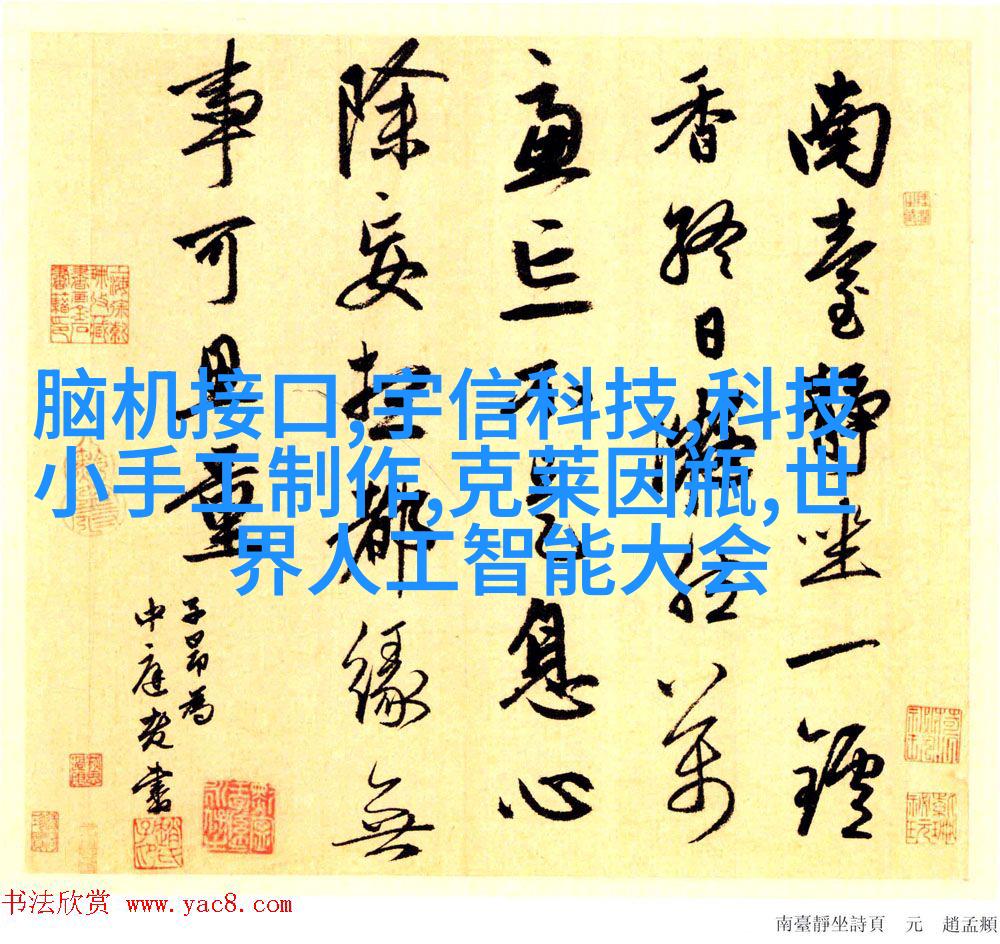 南臺靜坐一鑪
香終日凝然萬
慮亡不是息心
除妄想都緣無
事可思量
子昂為
中庭老書
脑机接口,宇信科技,科技
小手工制作,克莱因瓶,世
界人工智能大会
书法欣赏 www.yac8.com
南臺靜坐詩頁 元 趙孟頫